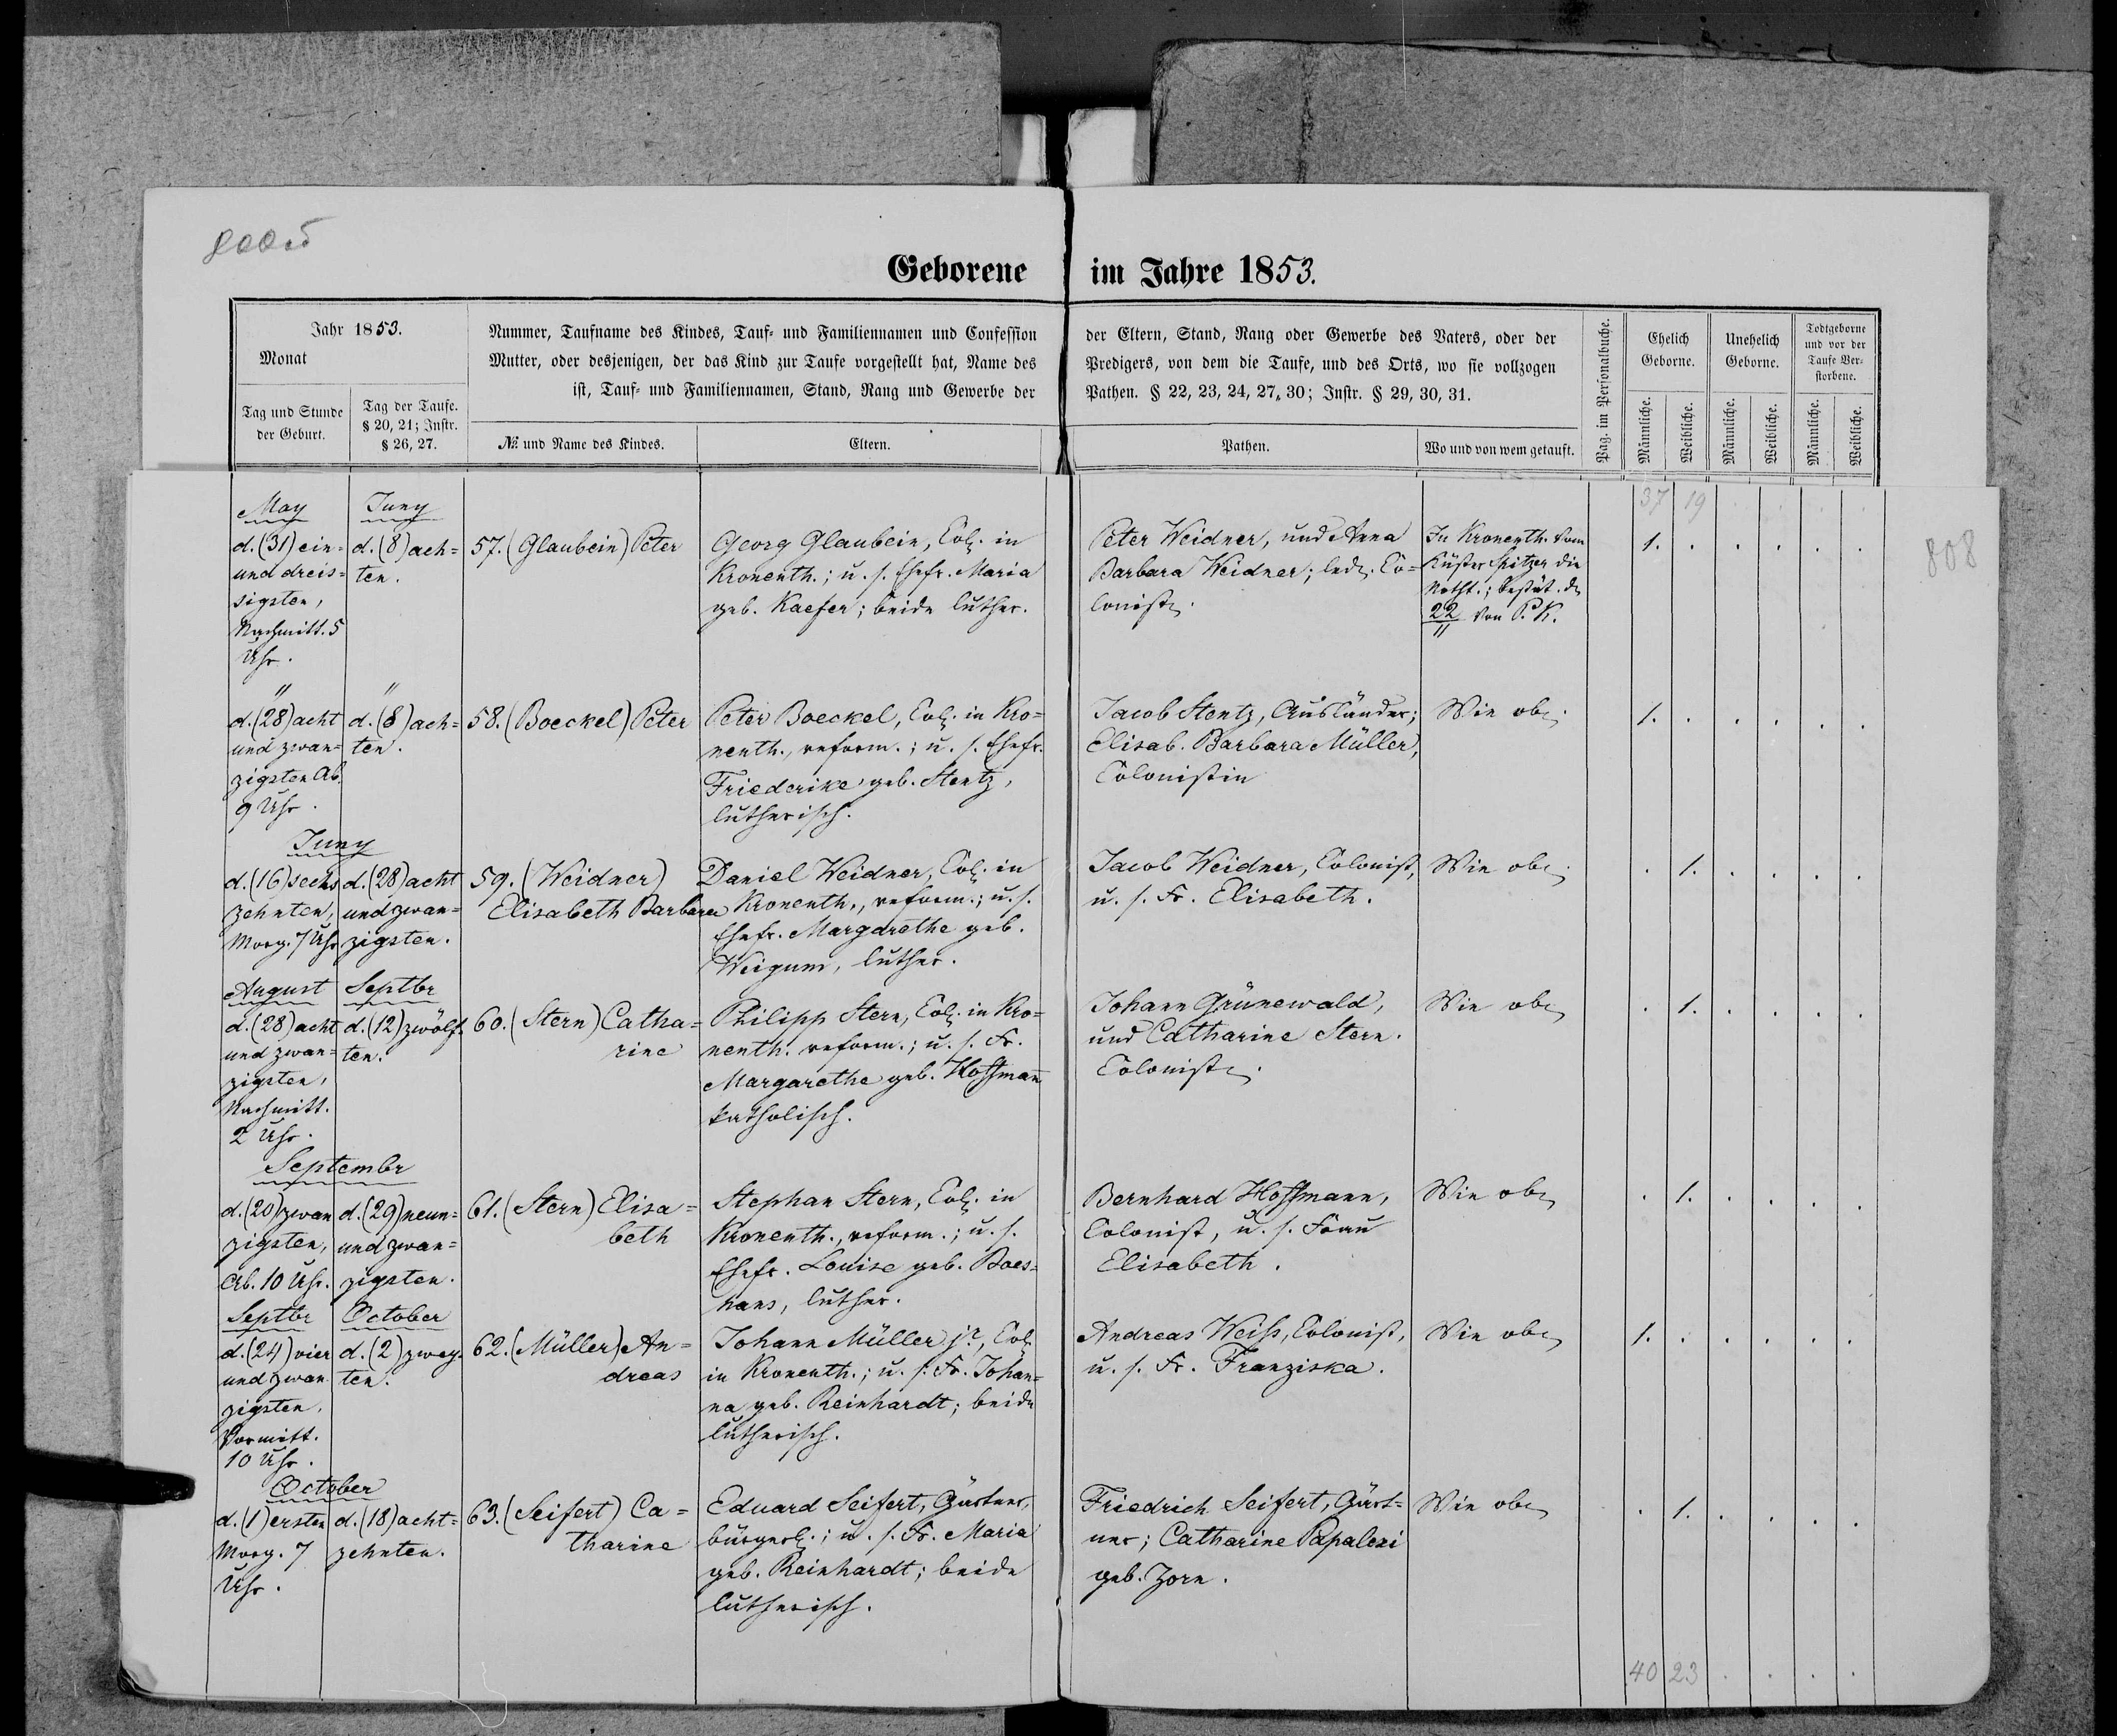 Geborene im Jahre 1853.
Jahr 1853.
Monat
Tag und Stunde
der Geburt.
Tag der Taufe.
§ 20, 21; Instr.
§ 26, 27.
Nummer, Taufname des Kindes, Tauf- und Familiennamen und Confession
Mutter, oder desjenigen, der das Kind zur Taufe vorgestellt hat, Name des
ist, Tauf- und Familiennamen, Stand, Rang und Gewerbe der
№ und Name des Kindes.
Eltern.
der Eltern, Stand, Rang oder Gewerbe des Vaters, oder der
Predigers, von dem die Taufe, und des Orts, wo sie vollzogen
Pathen. § 22, 23, 24, 27, 30; Instr. § 29, 30, 31.
Pathen.
Wo und von wem getauft.
Pag. im Personalbuche.
Ehelich
Geborne.
Unehelich
Geborne.
Todtgeborne
und vor der
Taufe Ver-
storbene.
Männliche.
Weibliche.
Männliche.
Weibliche.
Männliche.
Weibliche.
37 19
808
May
d. (31) ein-
und dreis-
sigsten,
Nachmitt. 5
Uhr.
Juny
d. (8) ach-
ten.
57. (Glaubein) Peter
Georg Glaubein, Col. in
Kronenth.; u. s. Ehefr. Maria
geb. Kaefer; beide luther.
Peter Weidner, und Anna
Barbara Weidner; led. Co-
lonisten.
In Kronenth. vom
Küster Spitzer die
Notht.; bestät. d.
22/11 von P. K.
1.
"
d. (28) acht
und zwan-
zigsten Ab.
9 Uhr.
"
d. (8) ach-
ten.
58. (Boeckel) Peter
Peter Boeckel, Col. in Kro-
nenth., reform.; u. s. Ehefr.
Friederike geb. Stentz,
lutherisch.
Jacob Stentz, Ausländer;
Elisab. Barbara Müller,
Colonistin
Wie oben.
1.
Juny
d. (16) sechs
zehnten,
Morg. 7 Uhr
d. (28) acht
und zwan-
zigsten.
59. (Weidner)
Elisabeth Barbara
Daniel Weidner, Col. in
Kronenth., reform.; u. s.
Ehefr. Margarethe geb.
Weigum, luther.
Jacob Weidner, Colonist,
u. s. Fr. Elisabeth.
Wie oben.
1.
August
d. (28) acht
und zwan-
zigsten,
Nachmitt.
2 Uhr.
Septbr
d. (12) zwölf-
ten.
60. (Stern) Catha-
rine
Philipp Stern, Col. in Kro-
nenth. reform.; u. s. Fr.
Margarethe geb. Hoffman̄
katholisch.
Johann Grünewald,
und Catharine Stern.
Colonisten.
Wie oben
1.
Septembr
d. (20) zwan
zigsten,
Ab. 10 Uhr.
d. (29) neun-
und zwan-
zigsten.
61. (Stern) Elisa-
beth
Stephan Stern, Col. in
Kronenth., reform.; u. s.
Ehefr. Louise geb. Boes-
hans, luther.
Bernhard Hoffmann,
Colonist, u. s. Frau
Elisabeth.
Wie oben
1.
Septbr
d. (24) vier
und zwan
zigsten,
Vormitt.
10 Uhr.
October
d. (2) zwey-
ten.
62. (Müller) An-
dreas
Johann Müller jr., Col.
in Kronenth.; u. s. Fr. Johan-
na geb. Reinhardt; beide
lutherisch.
Andreas Weiß, Colonist,
u. s. Fr. Franziska.
Wie oben
1.
October
d. (1) ersten
Morg. 7
Uhr.
d. (18) acht-
zehnten.
63. (Seifert) Ca-
tharine
Eduard Seifert, Gärtner,
bürgerl.; u. s. Fr. Maria
geb. Reinhardt; beide
lutherisch.
Friedrich Seifert, Gärt-
ner; Catharine Papalexi
geb. Zorn.
Wie oben
1.
40 23